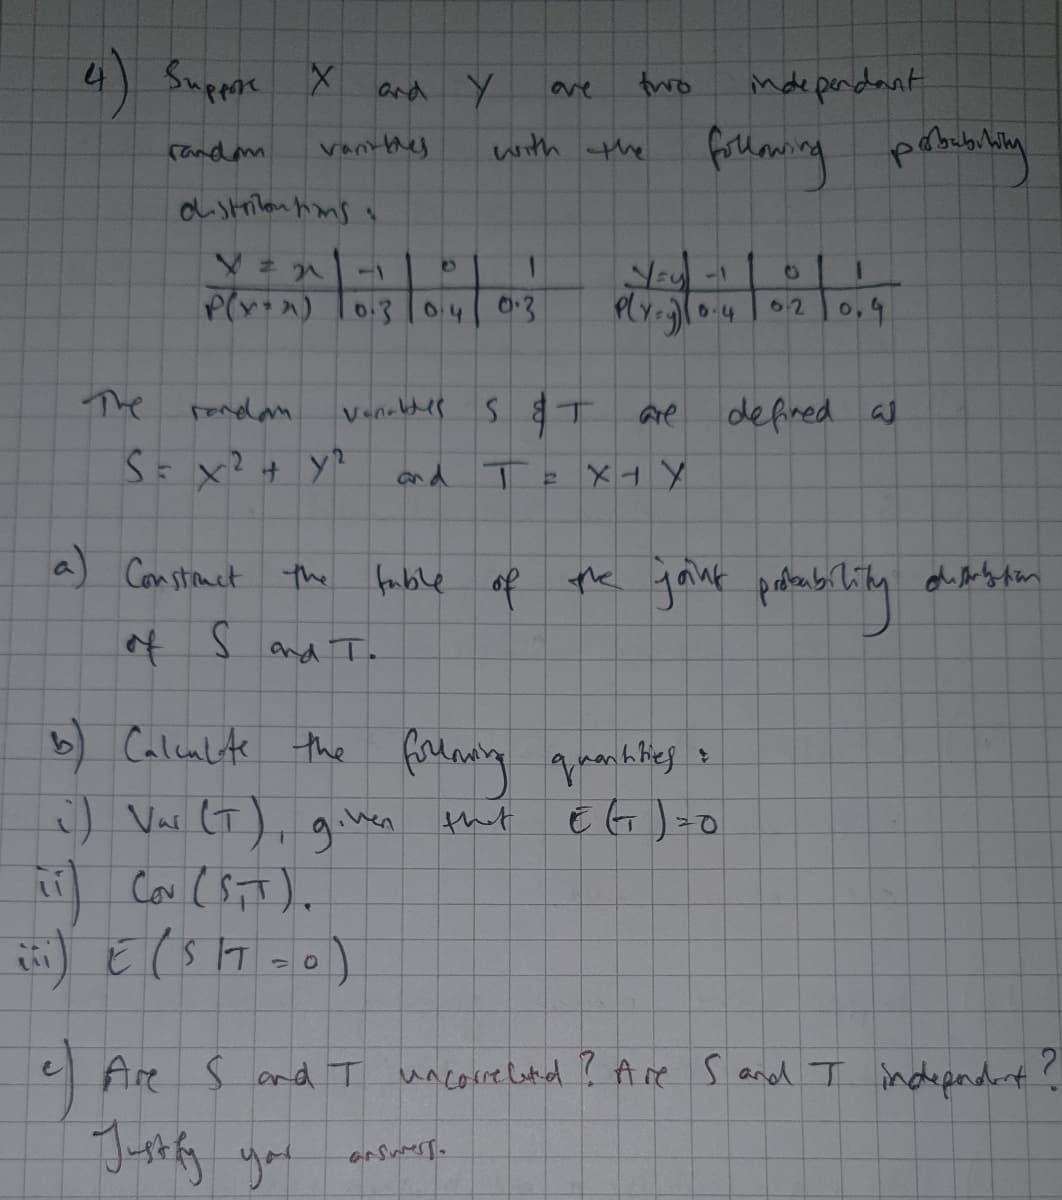 4) Suppose X and Y are two independant
random variables with the following probability
distributions.
X = x | -1 | 0 | 1
P(X=x) | 0.3 | 0.4 | 0.3
Y=y | -1 | 0 | 1
P(Y=y) | 0.4 | 0.2 | 0.4
The random variables S & T are defined as
S = X² + Y² and T = X + Y
a) Construct the table of the joint probability distribution
of S and T.
b) Calculate the following quantities :
i) Var (T), given that E(T)=0
ii) Cov (S,T).
iii) E(S|T=0)
c) Are S and T uncorrelated? Are S and T independent?
Justify your answers.